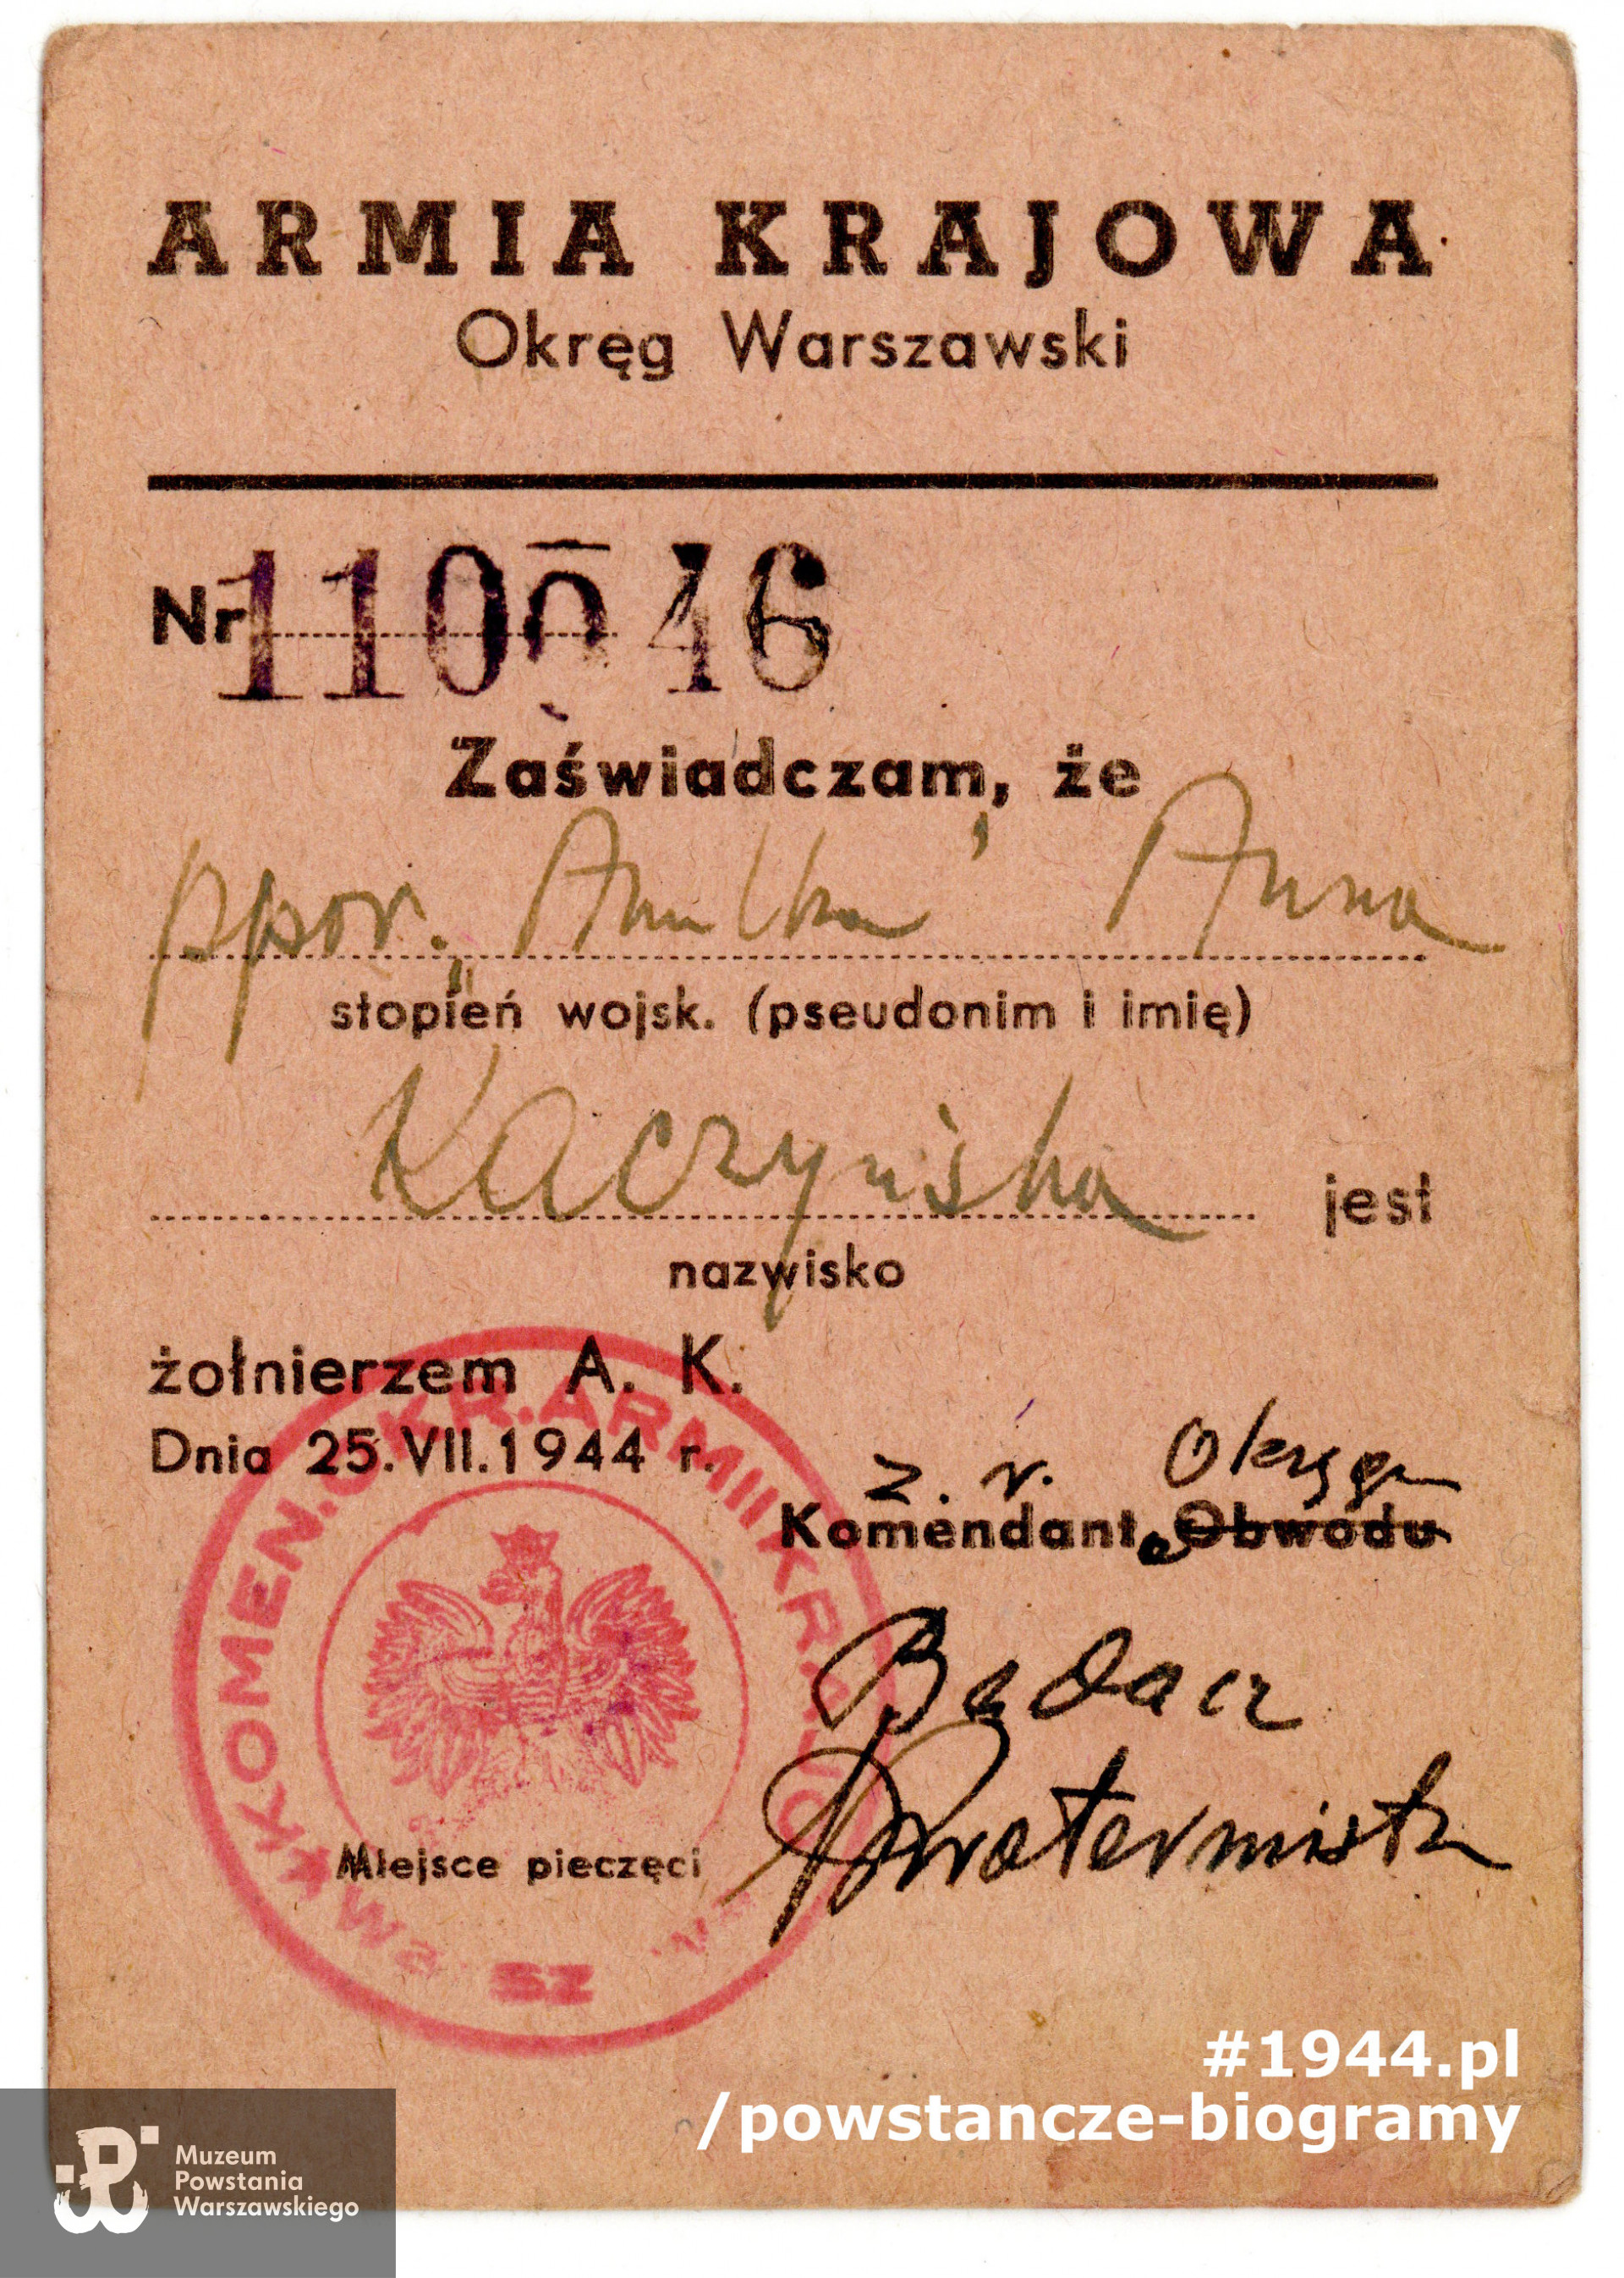 ARMIA KRAJOWA
Okręg Warszawski
Nr 110046
Zaświadczam, że
ppor. „Anulka" Anna
stopień wojsk. (pseudonim i imię)
Kaczyńska jest
nazwisko
żołnierzem A. K.
Dnia 25.VII.1944 r.
z. r. Okręgu
Komendant Obwodu
Badacz
Kwatermistrz
KOMEN. OKR. ARMII KRAJO
SZ
Miejsce pieczęci
#1944.pl
/powstancze-biogramy
Muzeum
Powstania
Warszawskiego